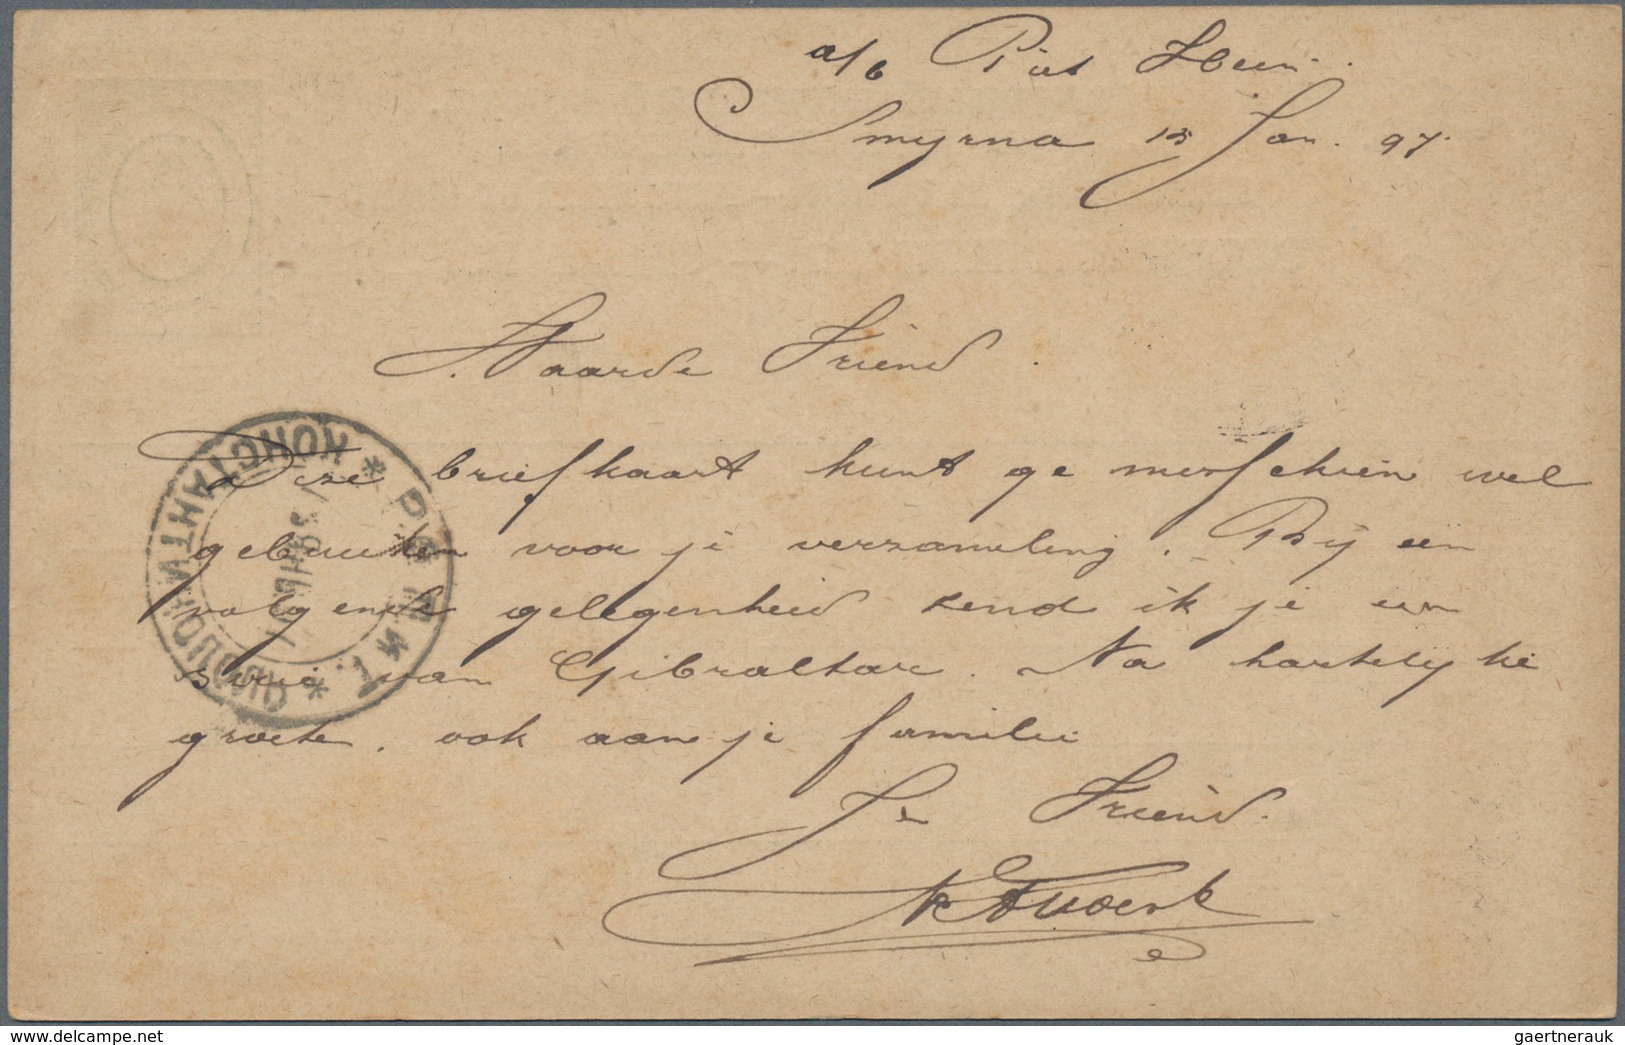 a/b Piet Hein.
Smyrna 15 Jan. 97.
Waarde Vriend.
Deze briefkaart kunt ge misschien wel
gebruiken voor je verzameling. Bij een
volgende gelegenheid zend ik je een
serie van Gibraltar. Na hartelijke
groete, ook aan je familie
Je Vriend.
КОНСТАНТИНОПОЛЬ
delcampe.net
gaertnerauk